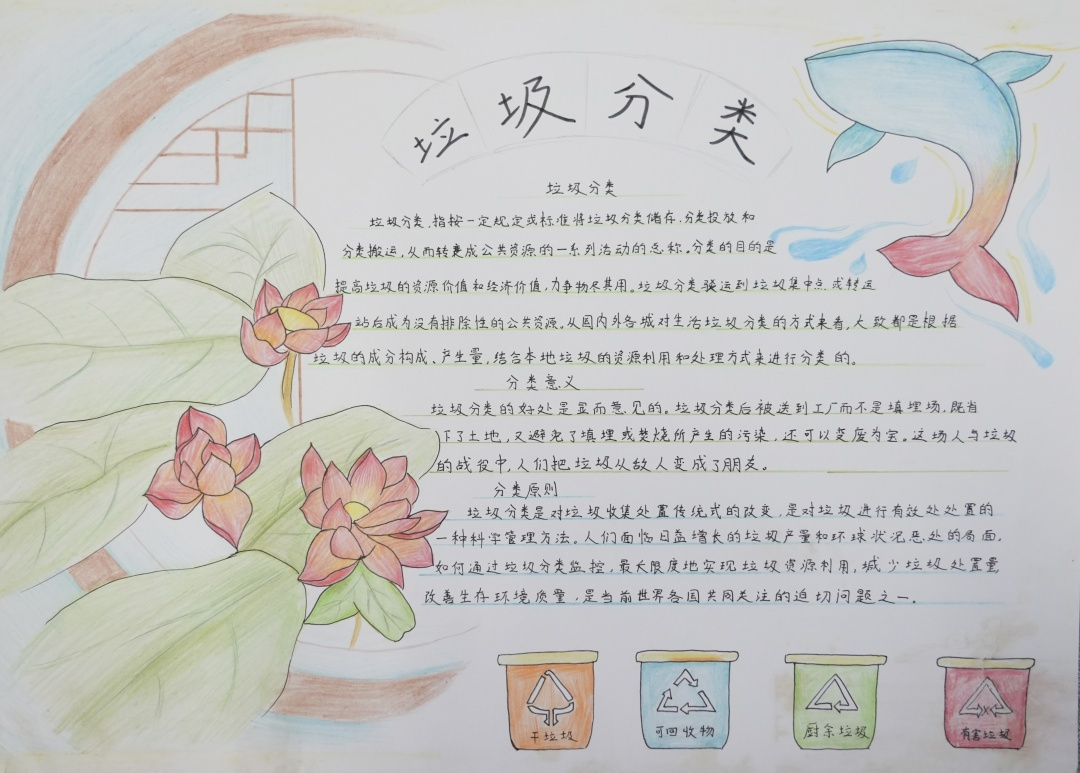 垃圾分类
垃圾分类
垃圾分类,指按一定规定或标准将垃圾分类储存,分类投放和
分类搬运,从而转变成公共资源的一系列活动的总称。分类的目的是
提高垃圾的资源价值和经济价值,力争物尽其用。垃圾分类驳运到垃圾集中点或转运
站后成为没有排除性的公共资源。从国内外各城对生活垃圾分类的方式来看,大致都是根据
垃圾的成分构成、产生量,结合本地垃圾的资源利用和处理方式来进行分类的。
分类意义
垃圾分类的好处是显而意见的。垃圾分类后被送到工厂而不是填埋场,既省
下了土地,又避免了填埋或焚烧所产生的污染,还可以变废为宝。这场人与垃圾
的战役中,人们把垃圾从敌人变成了朋友。
分类原则
垃圾分类是对垃圾收集处置传统式的改变,是对垃圾进行有效处处置的
一种科学管理方法。人们面临日益增长的垃圾产量和环球状况恶处的局面,
如何通过垃圾分类监控,最大限度地实现垃圾资源利用,减少垃圾处置量
改善生存环境质量,是当前世界各国共同关注的迫切问题之一。
干垃圾
可回收物
厨余垃圾
有害垃圾